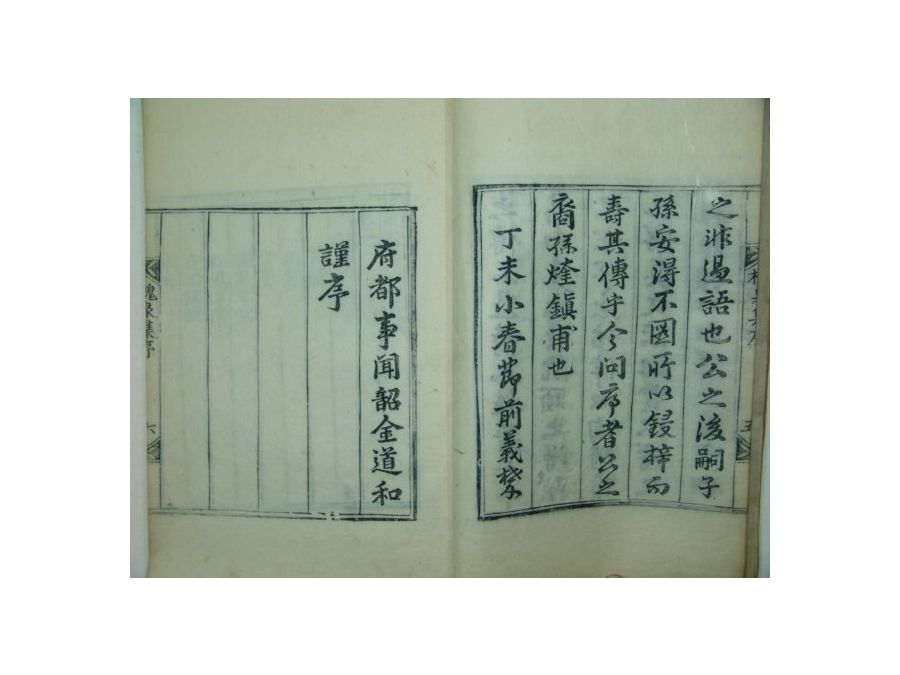 之非過語也公之後嗣子
孫安得不圖所以鋟梓而
壽其傳乎今問序者公之
裔孫㷟鎭甫也
丁未小春節前義禁
府都事聞韶金道和
謹序
五
槐泉集序
六